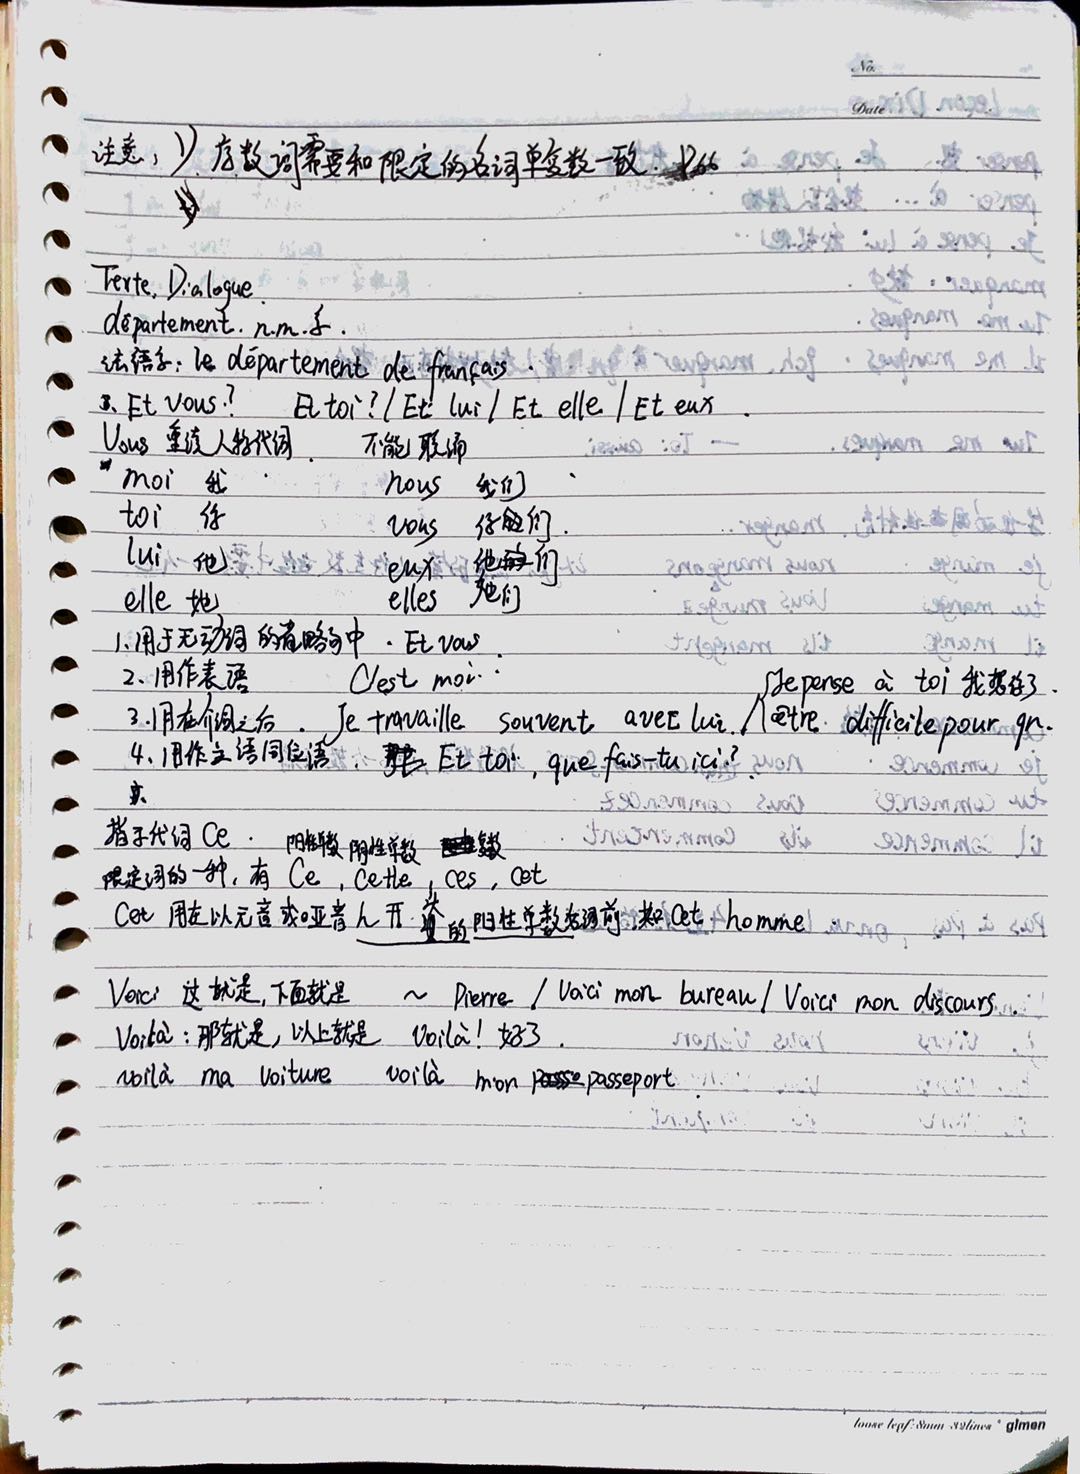 No.
Date
注意, 1) 序数词需要和限定的名词单复数一致. P266
Texte. Dialogue
département. n.m. 系.
法语系: le département de français.
3. Et vous? Et toi? / Et lui / Et elle / Et eux.
Vous 重读人称代词 不能联诵
moi 我 nous 我们
toi 你 vous 你们.
lui 他 eux 他们
elle 她 elles 她们
1. 用于无动词的省略句中. Et vous.
2. 用作表语 C'est moi.
Je pense à toi 我想你了.
3. 用在介词之后. Je travaille souvent avec lui. / être difficile pour qn.
4. 用作主语同位语. Et toi, que fais-tu ici?
指示代词 Ce. 阳性单数 阴性单数 复数
限定词的一种, 有 Ce, cette, ces, cet
Cet 用在以元音或哑音h开头的阳性单数名词前. 如 Cet homme.
Voici 这就是, 下面就是 ~ Pierre / Voici mon bureau / Voici mon discours.
Voilà: 那就是, 以上就是 Voilà! 好了.
voilà ma voiture voilà mon passeport
loose leaf: 8mm 32lines glmen